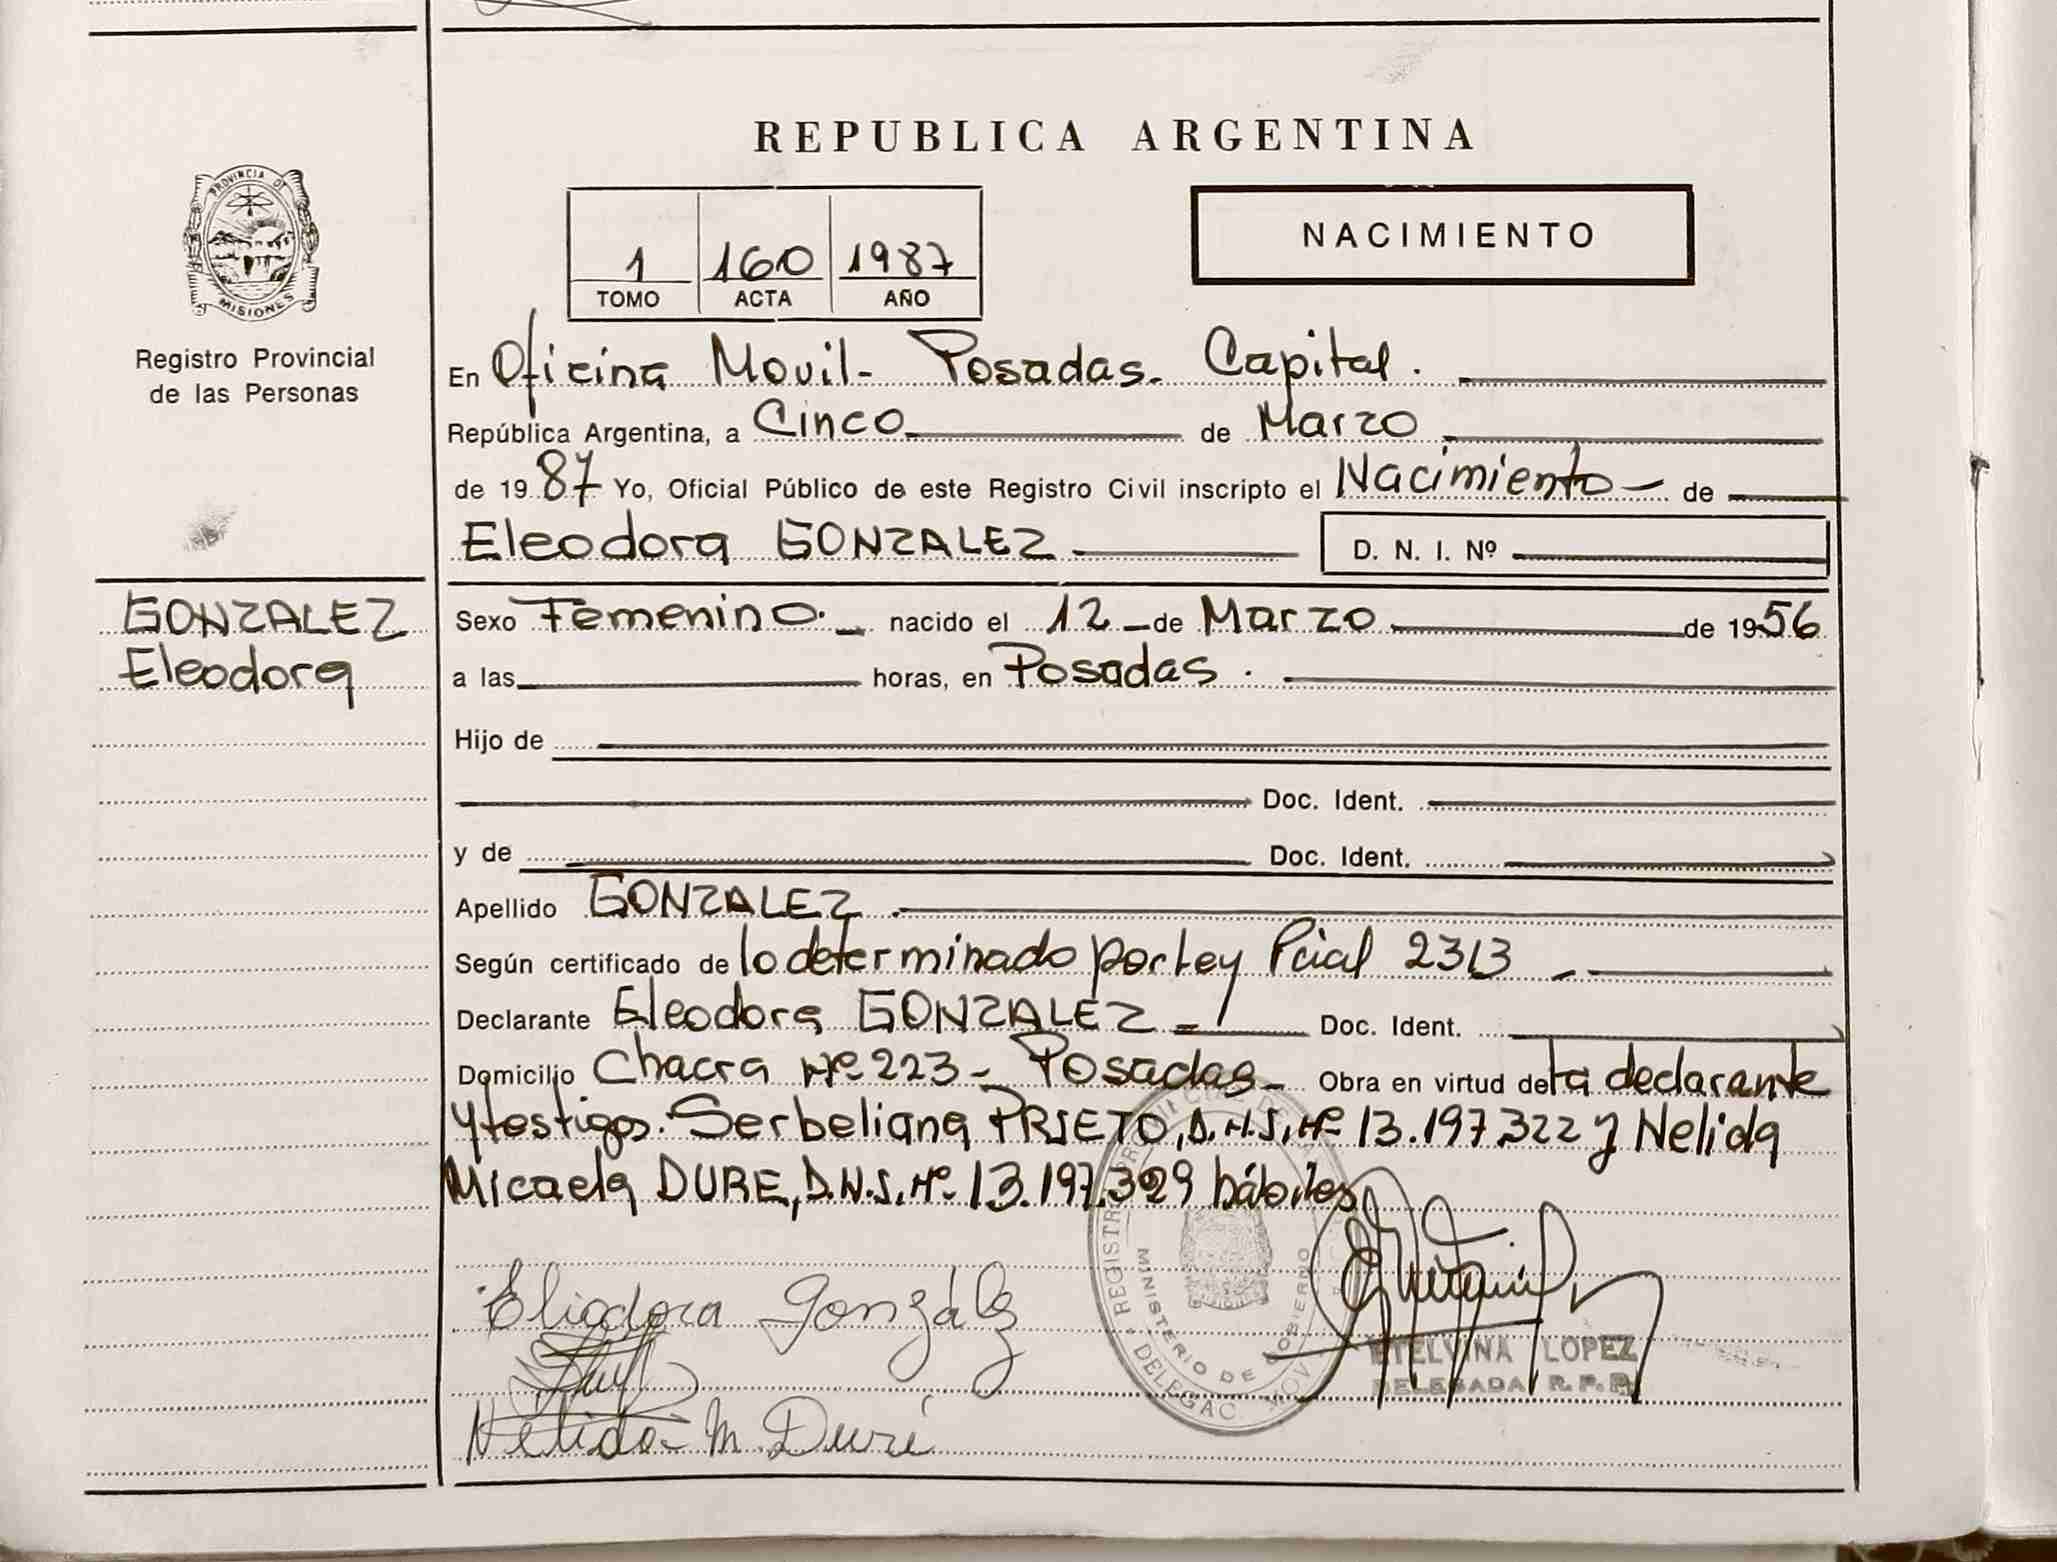 REPUBLICA ARGENTINA
PROVINCIA DE
MISIONES
Registro Provincial
de las Personas
1 160 1987
TOMO ACTA AÑO
NACIMIENTO
En Oficina Movil- Posadas. Capital.
República Argentina, a Cinco de Marzo
de 1987 Yo, Oficial Público de este Registro Civil inscripto el Nacimiento de
Eleodora GONZALEZ D. N. I. Nº
GONZALEZ
Eleodora
Sexo Femenino. nacido el 12 de Marzo de 1956
a las horas, en Posadas.
Hijo de
Doc. Ident.
y de Doc. Ident.
Apellido GONZALEZ.
Según certificado de lo determinado por Ley Pcial 2313
Declarante Eleodora GONZALEZ Doc. Ident.
Domicilio Chacra Nº 223- Posadas- Obra en virtud de la declarante
y testigos. Serbeliana PRIETO, D.N.I. Nº 13.197.322 y Nelida
Micaela DURE, D.N.I. Nº 13.197.329 hábiles
Eliodora González
Nelida M. Duré
MINISTERIO DE GOBIERNO
ETELVINA LOPEZ
DELEGADA R.P.P.